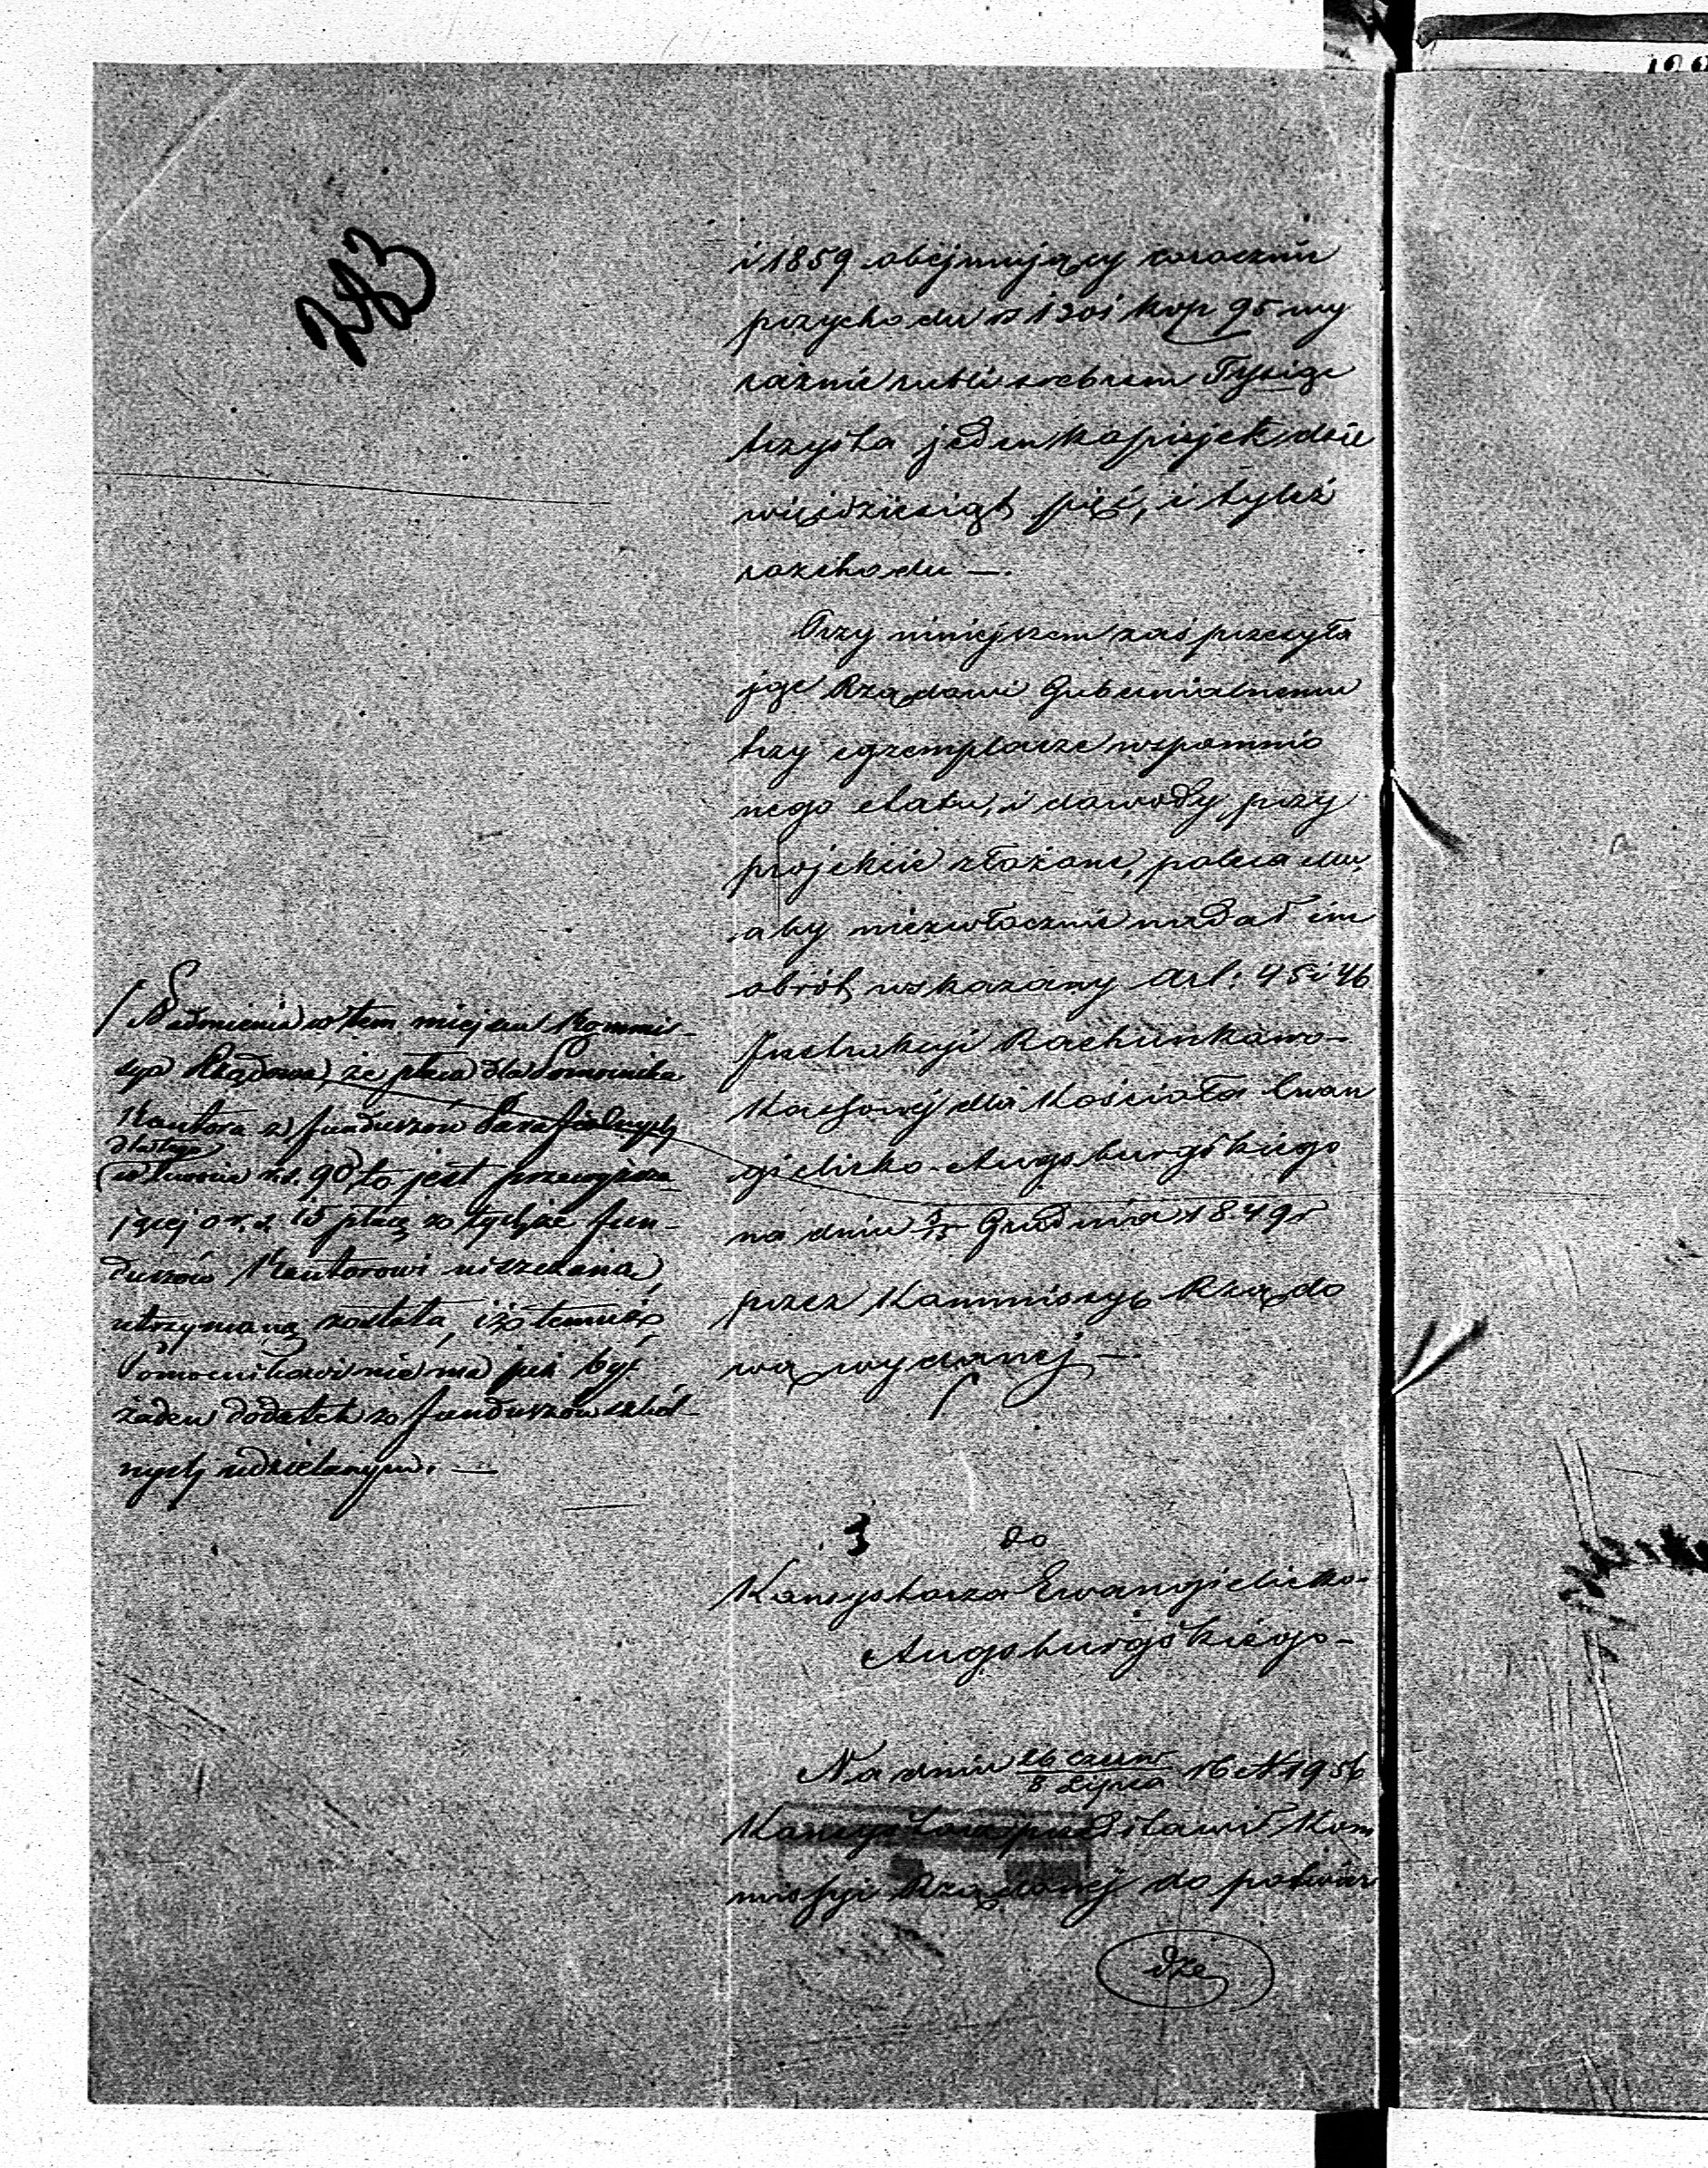 243
i 1859 obejmujący corocznie
przychodu rs 1301 kop 95 wy
raźnie rubli srebrem Tysiąc
trzysta jeden kopiejek dzie
więćdziesiąt pięć, i tyleż
rozchodu —.
Przy niniejszem zaś przesyła
jąc Rządowi Gubernialnemu
trzy egzemplarze wspomnio
nego etatu, i dowody przy
projekcie złożone, poleca mu,
aby niezwłocznie nadał im
obrót wskazany Art: 45 i 46
Instrukcji Rachunkowo-
Kassowéj dla Kościoła Ewan
gielicko-Augsburgskiego
na dniu Grudnia 1849 r
przez Kommissyę Rządo
wą wydanéj —.
Nadmienia w tem miejscu Kommis-
sya Rządowa, że płaca dla Pomocnika
Kantora z funduszów Parafialnych
dla tego
w kwocie rs. 90, to jest przewyższa-
jącej o r.s. 15 płacę z tychże fun-
duszów Kantorowi uiszczaną,
utrzymaną została, iż temuż
Pomocnikowi nie ma już być
żaden dodatek z funduszów szkól-
nych udzielanym. —
do
Konsystorza Ewangielicko-
Augsburgskiego-
Na dniu 26 Czerw/8 Lipca rb N 1956
Konsystorz przedstawił Kom
missyi Rządowéj do potwier
dze